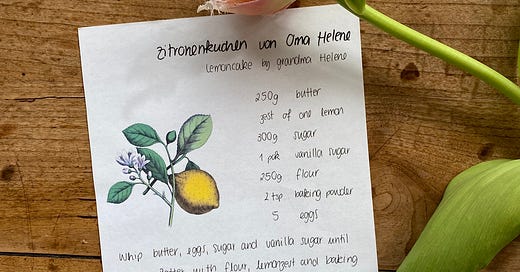 Zitronenkuchen von Oma Helene
Lemoncake by grandma Helene
250g butter
zest of one lemon
300g sugar
1 pck vanilla sugar
250g flour
2 tsp baking powder
5 eggs
Whip butter, eggs, sugar and vanilla sugar until
with flour, lemonzest and baking